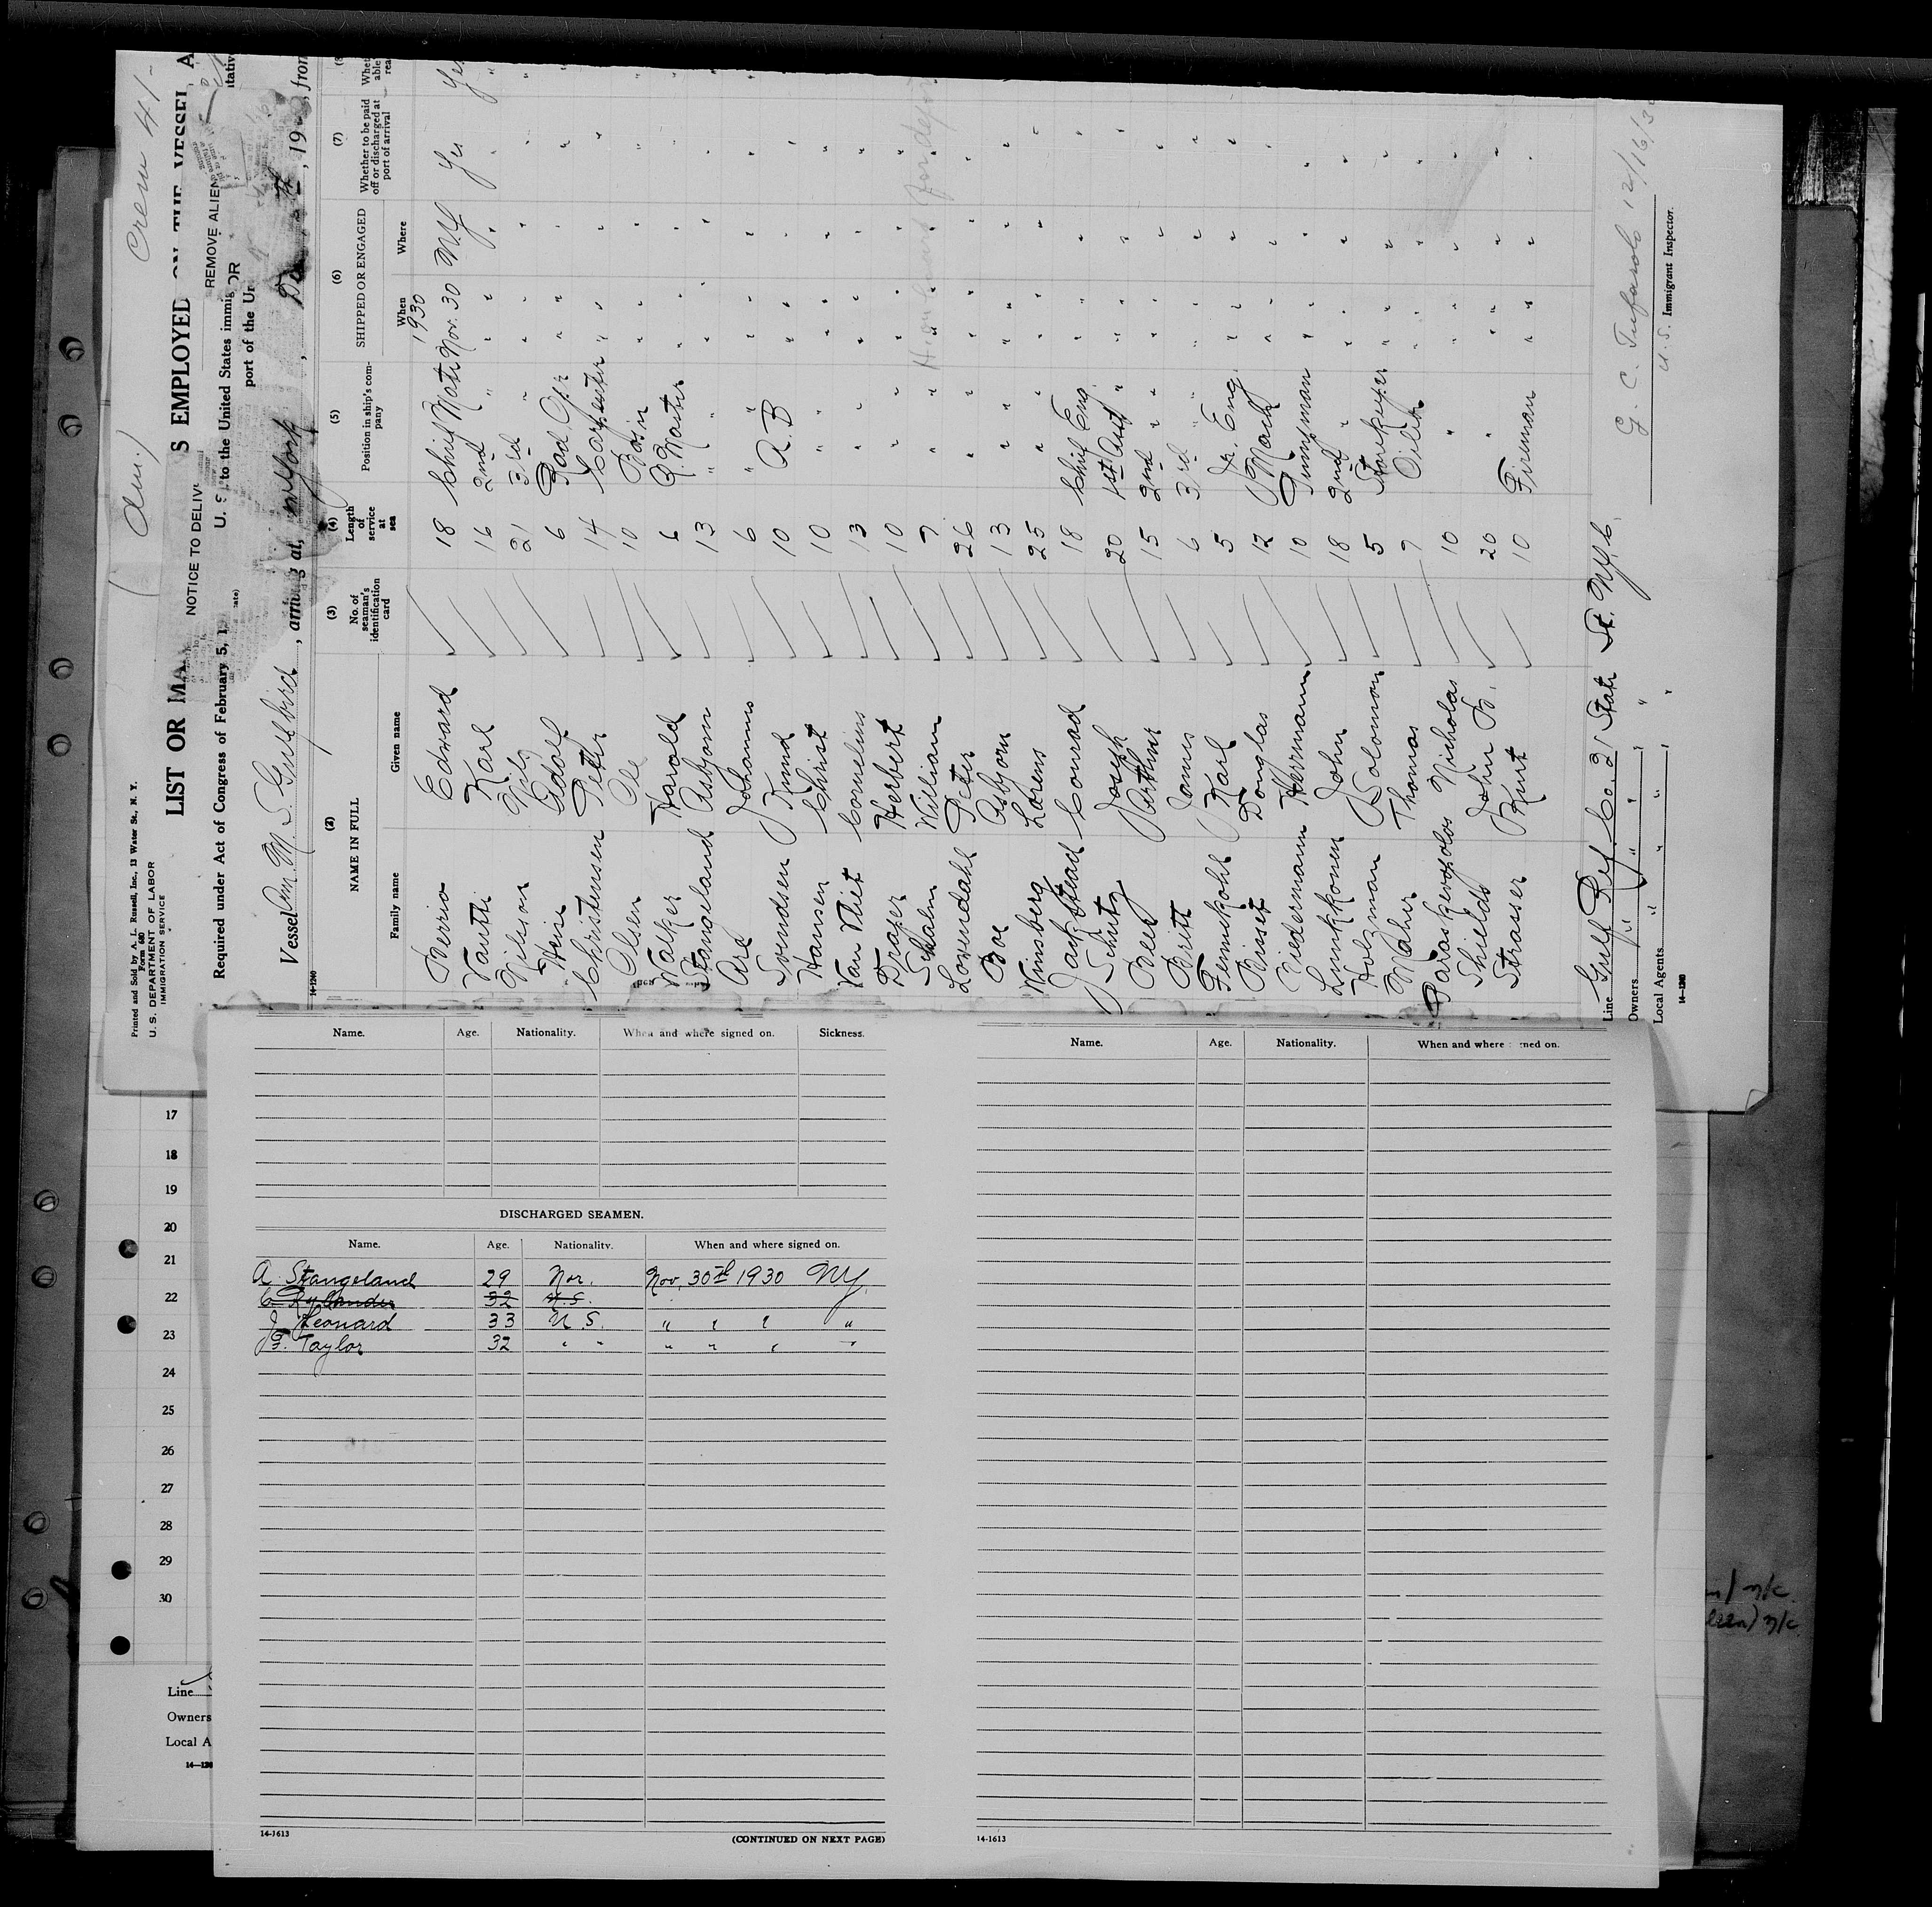 Crew 41-
(Am.)
Printed and Sold by A. L. Russell, Inc., 13 Water St., N. Y.
Form 680
U. S. DEPARTMENT OF LABOR
IMMIGRATION SERVICE
LIST OR MA S EMPLOYED ON THE VESSEL A
NOTICE TO DELIV REMOVE ALIEN
Required under Act of Congress of February 5, 1 U. S to the United States immig OR tativ
port of the Un
Vessel Am. M. S. Gulfbird, arriving at, New York, Dec th, 19 , from
14-1240
(2) (3) (4) (5) (6) (7) (8
NAME IN FULL No. of seaman's identification card Length of service at sea Position in ship's company SHIPPED OR ENGAGED Whether to be paid off or discharged at port of arrival Whet able rea
Family name Given name When Where
1930
Edward 18 Chief Mate Nov. 30 N.Y Yes Yes
Karl 16 2nd "
Nilson Nils 21 3rd "
Adolf 6 Rad Opr
Christensen Peter 14 Carpenter
Olsen Ole 10 Bos'n
Walker Harold 6 Q. Master
Stangeland Asbjorn 13 "
Are Johannes 6 "
Svendsen Knud 10 A. B
Hansen Christ 10 "
Van Vliet Cornelius 13 "
Draper Herbert 10 "
Schalm William 7 "
Lovendahl Peter 26 "
Boe Asbjorn 13 "
Winsberg Larens 25 "
Jack Stead Conrad 18 Chief Eng.
Schutz Joseph 20 1st Asst "
Arthur 15 2nd "
Britt James 6 3rd "
Fennekohl Karl 5 Jr. Eng.
Douglas 12
Niedermann Herrmann 10 Pumpman
Lunkkonen John 18 2nd "
Holzman Solomon 5 Storekeeper
Maher Thomas 7 Oiler
Nicholas 10 "
Shields John B. 20 "
Strasser Kurt 10 Fireman
Line Gulf Ref. Co. 21 State St. N.Y.C.
Owners " " " "
Local Agents " " " "
14-1240
12/16/3
U. S. Immigrant Inspector.
Name. Age. Nationality. When and where signed on. Sickness.
DISCHARGED SEAMEN.
Name. Age. Nationality. When and where signed on.
A. Stangeland 29 Nor. Nov. 30th 1930 NY.
32 U.S.
J. Leonard 33 U.S. " " " "
F. Taylor 32 " " " " " "
14-1613
(CONTINUED ON NEXT PAGE)
Name. Age. Nationality. When and where ned on.
14-1613
17
18
19
20
21
22
23
24
25
26
27
28
29
30
Line
Owners
Local A